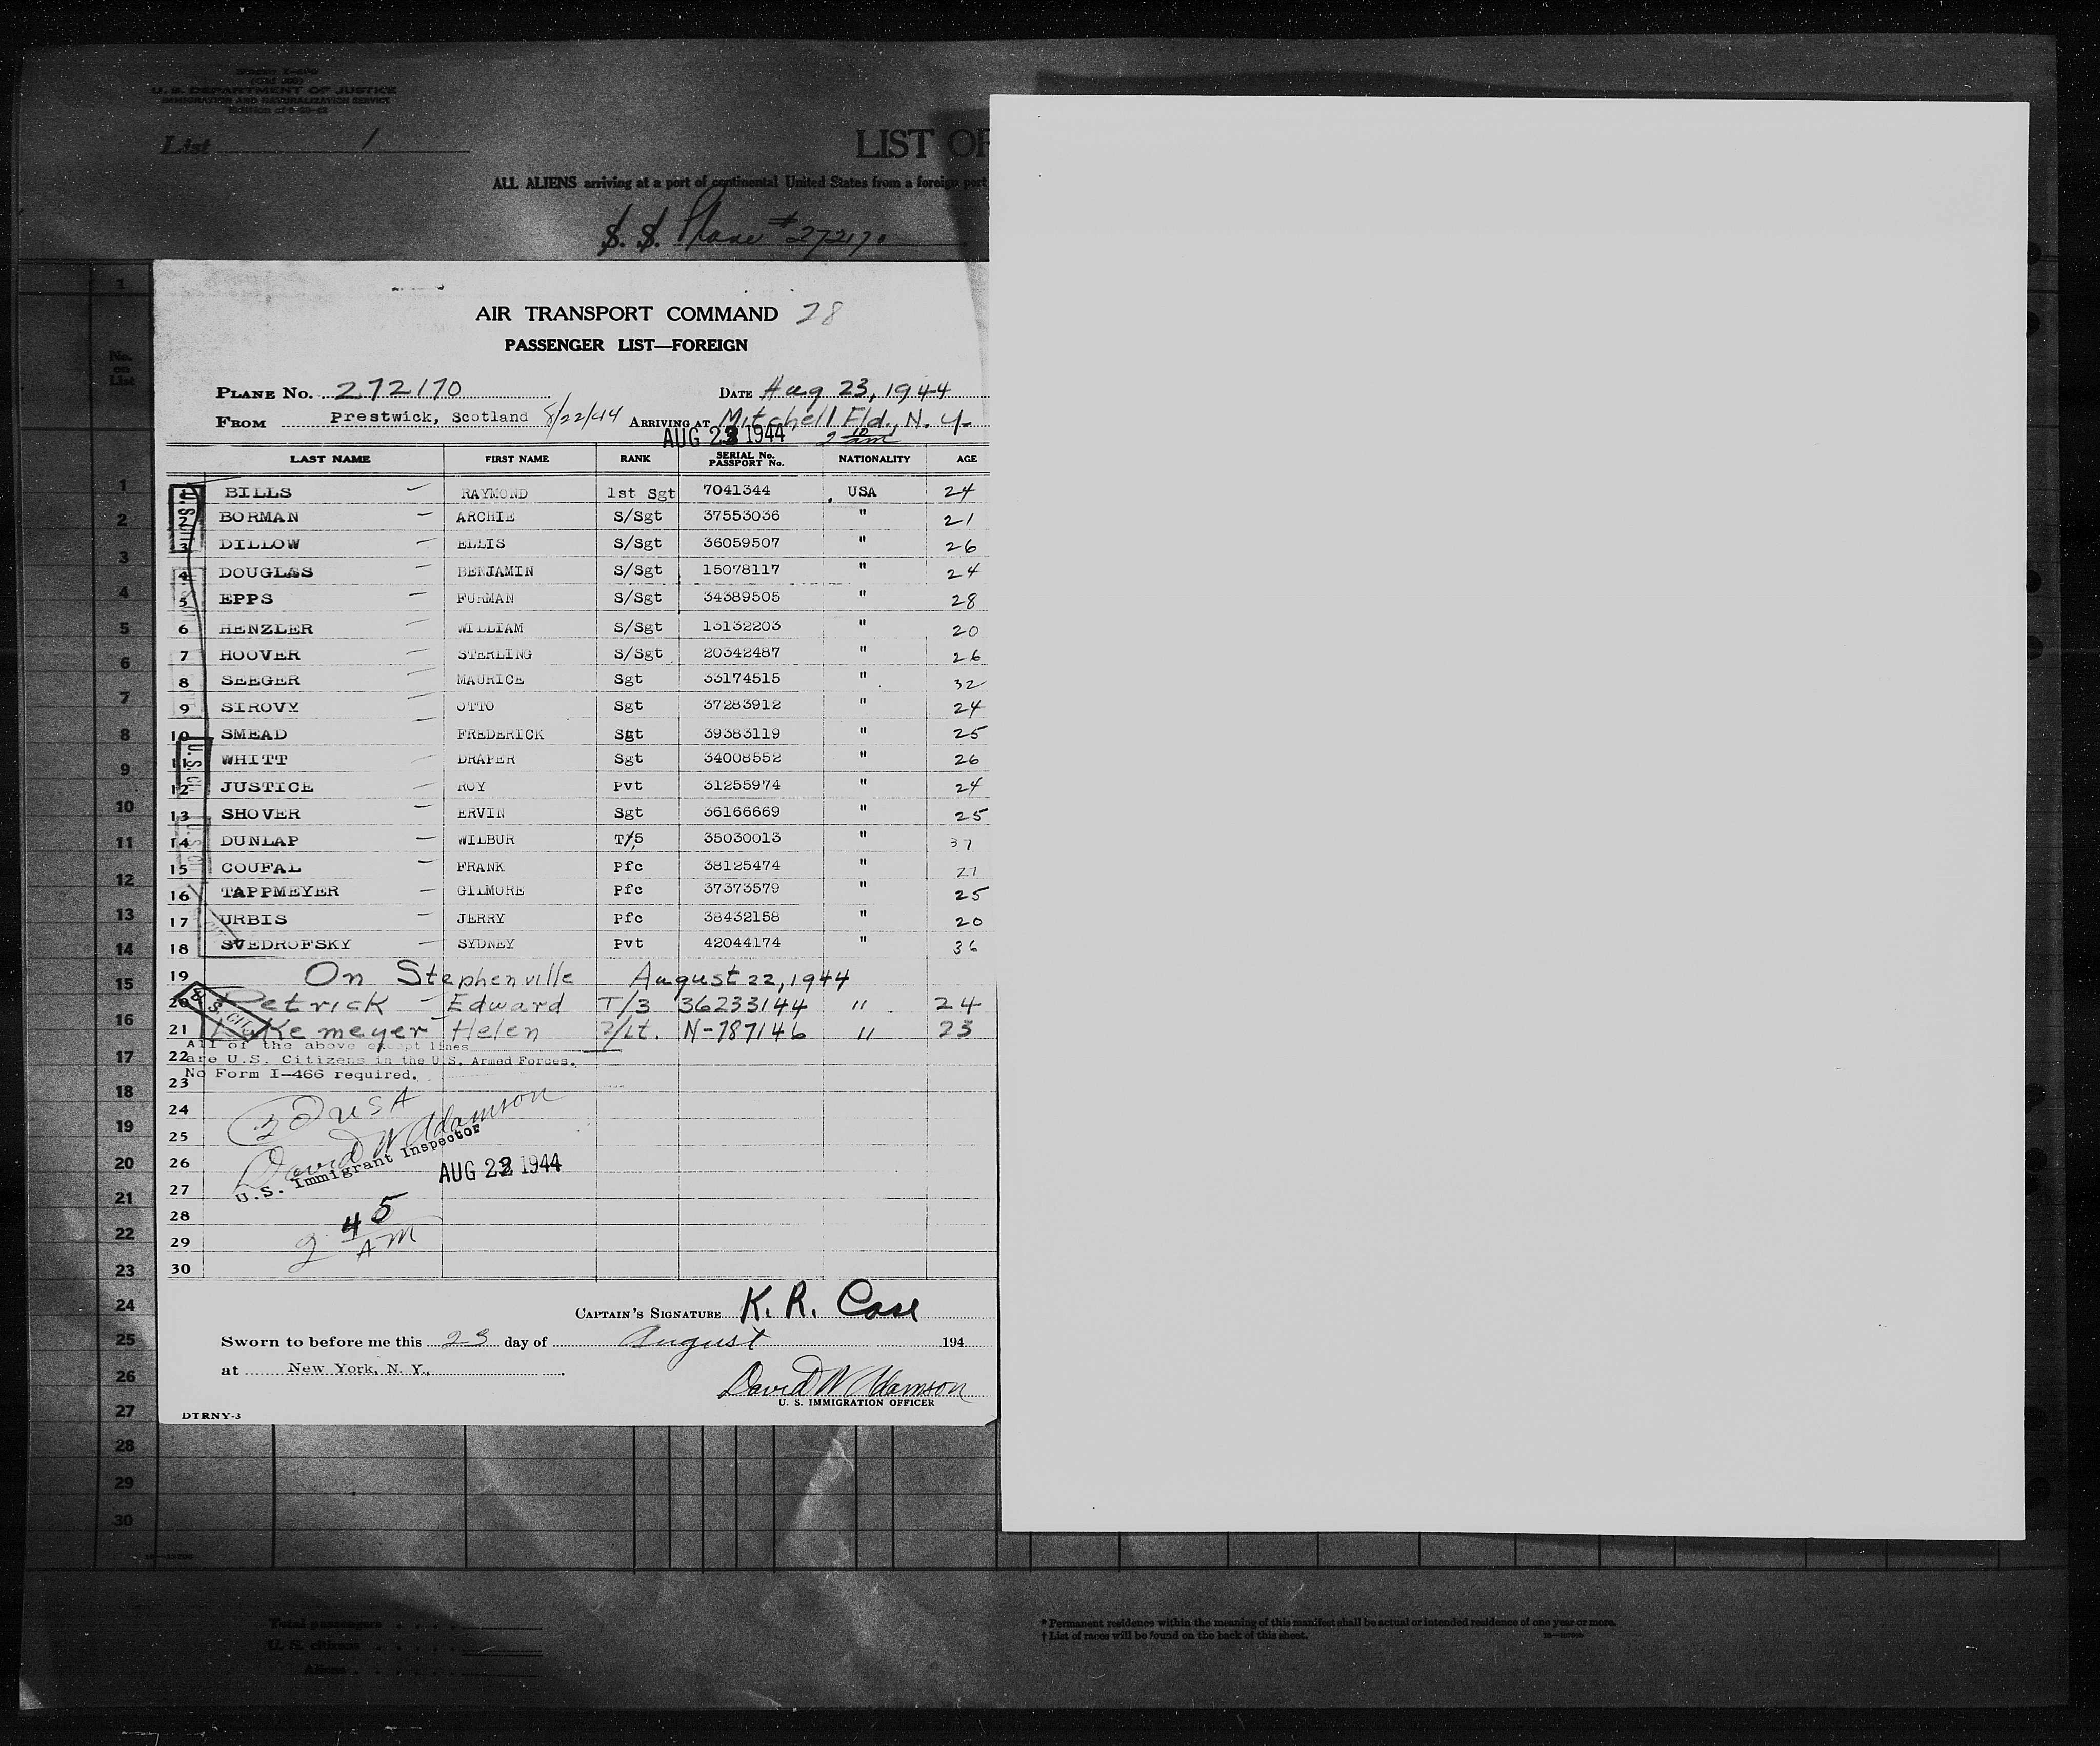 U. S. DEPARTMENT OF JUSTICE
IMMIGRATION AND NATURALIZATION SERVICE
List 1
LIST OF
ALL ALIENS arriving at a port of continental United States from a foreign port
S. S. Plane # 272170
No. on List
AIR TRANSPORT COMMAND 28
PASSENGER LIST—FOREIGN
PLANE No. 272170 DATE Aug 23, 1944
FROM Prestwick, Scotland 8/22/44 ARRIVING AT Mitchell Fld., N. Y.
AUG 23 1944 2 10 am
LAST NAME FIRST NAME RANK SERIAL No. PASSPORT No. NATIONALITY AGE
1 BILLS — RAYMOND 1st Sgt 7041344 USA 24
2 BORMAN — ARCHIE S/Sgt 37553036 " 21
3 DILLOW — ELLIS S/Sgt 36059507 " 26
4 DOUGLAS — BENJAMIN S/Sgt 15078117 " 24
5 EPPS — FURMAN S/Sgt 34389505 " 28
6 HENZLER — WILLIAM S/Sgt 13132203 " 20
7 HOOVER — STERLING S/Sgt 20342487 " 26
8 SEEGER — MAURICE Sgt 33174515 " 32
9 SIROVY — OTTO Sgt 37283912 " 24
10 SMEAD — FREDERICK Sgt 39383119 " 25
11 WHITT — DRAPER Sgt 34008552 " 26
12 JUSTICE — ROY Pvt 31255974 " 24
13 SHOVER — ERVIN Sgt 36166669 " 25
14 DUNLAP — WILBUR T/5 35030013 " 37
15 COUFAL — FRANK Pfc 38125474 " 21
16 TAPPMEYER — GILMORE Pfc 37373579 " 25
17 URBIS — JERRY Pfc 38432158 " 20
18 SVEDROFSKY — SYDNEY Pvt 42044174 " 36
19 On Stephenville August 22, 1944
20 Petrick — Edward T/3 36233144 " 24
21 Helen 2/Lt. N-787146 " 23
All of the above except lines
22 are U.S. Citizens in the U.S. Armed Forces.
No Form I-466 required.
23
24 20 USA
25 David W Adamson
26 U.S. Immigrant Inspector AUG 23 1944
27
28 2 45
29 AM
30
CAPTAIN'S SIGNATURE K. R. Case
Sworn to before me this 23 day of August 194
at New York, N. Y.,
David W Adamson
U. S. IMMIGRATION OFFICER
DTRNY-3
1
2
3
4
5
6
7
8
9
10
11
12
13
14
15
16
17
18
19
20
21
22
23
24
25
26
27
28
29
30
Total passengers
U. S. citizens
Aliens
* Permanent residence within the meaning of this manifest shall be actual or intended residence of one year or more.
† List of races will be found on the back of this sheet.